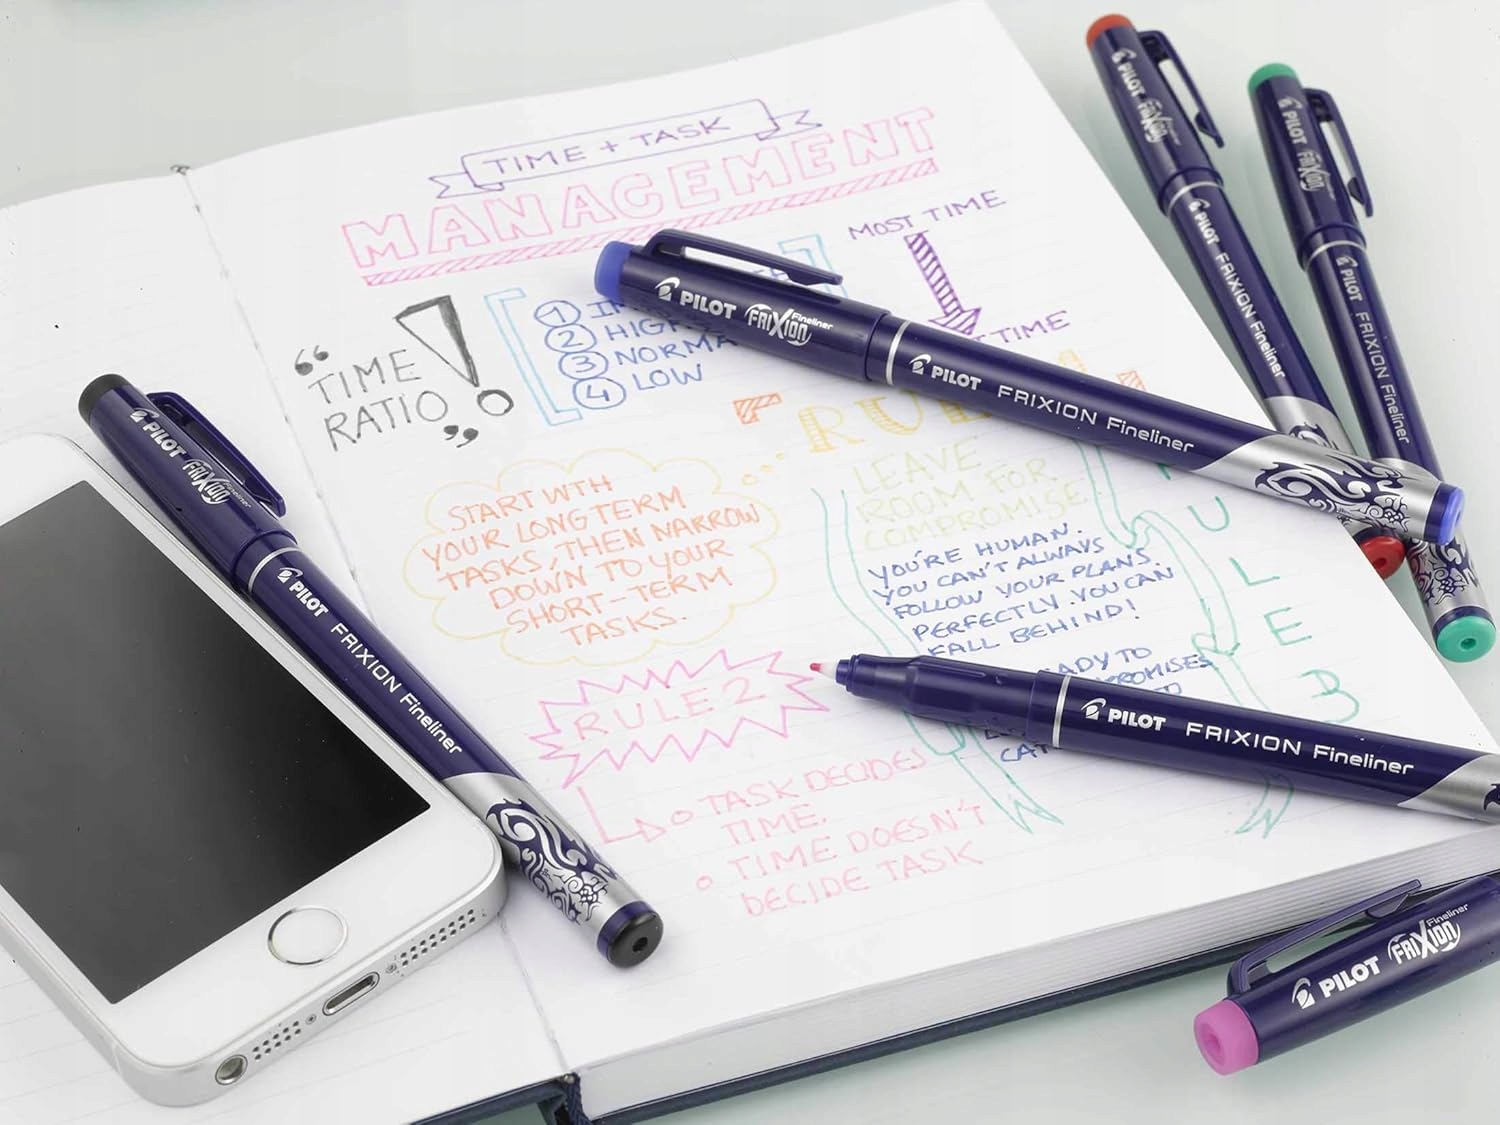 TIME + TASK
MANAGEMENT
MOST TIME
TIME
"TIME
RATIO"
!
1
2 HIGH
3 NORMA
4 LOW
RULE
START WTH
YOUR LONG TERM
TASKS, THEN NARROW
DOWN TO YOUR
SHORT-TERM
TASKS.
LEAVE
ROOM FOR
COMPROMISE
YOU'RE HUMAN.
YOU CAN'T ALWAYS
FOLLOW YOUR PLANS
PERFECTLY. YOU CAN
FALL BEHIND!
TO
RULE 3
RULE 2
TASK DECIDES
TIME.
TIME DOESN'T
DECIDE TASK
PILOT FRIXION Fineliner
PILOT FRIXION Fineliner
PILOT FRIXION Fineliner
PILOT FRIXION Fineliner
PILOT FRIXION
PILOT FRIXION Fineliner
PILOT FRIXION
PILOT FRIXION Fineliner
PILOT FRIXION Fineliner
PILOT FRIXION Fineliner